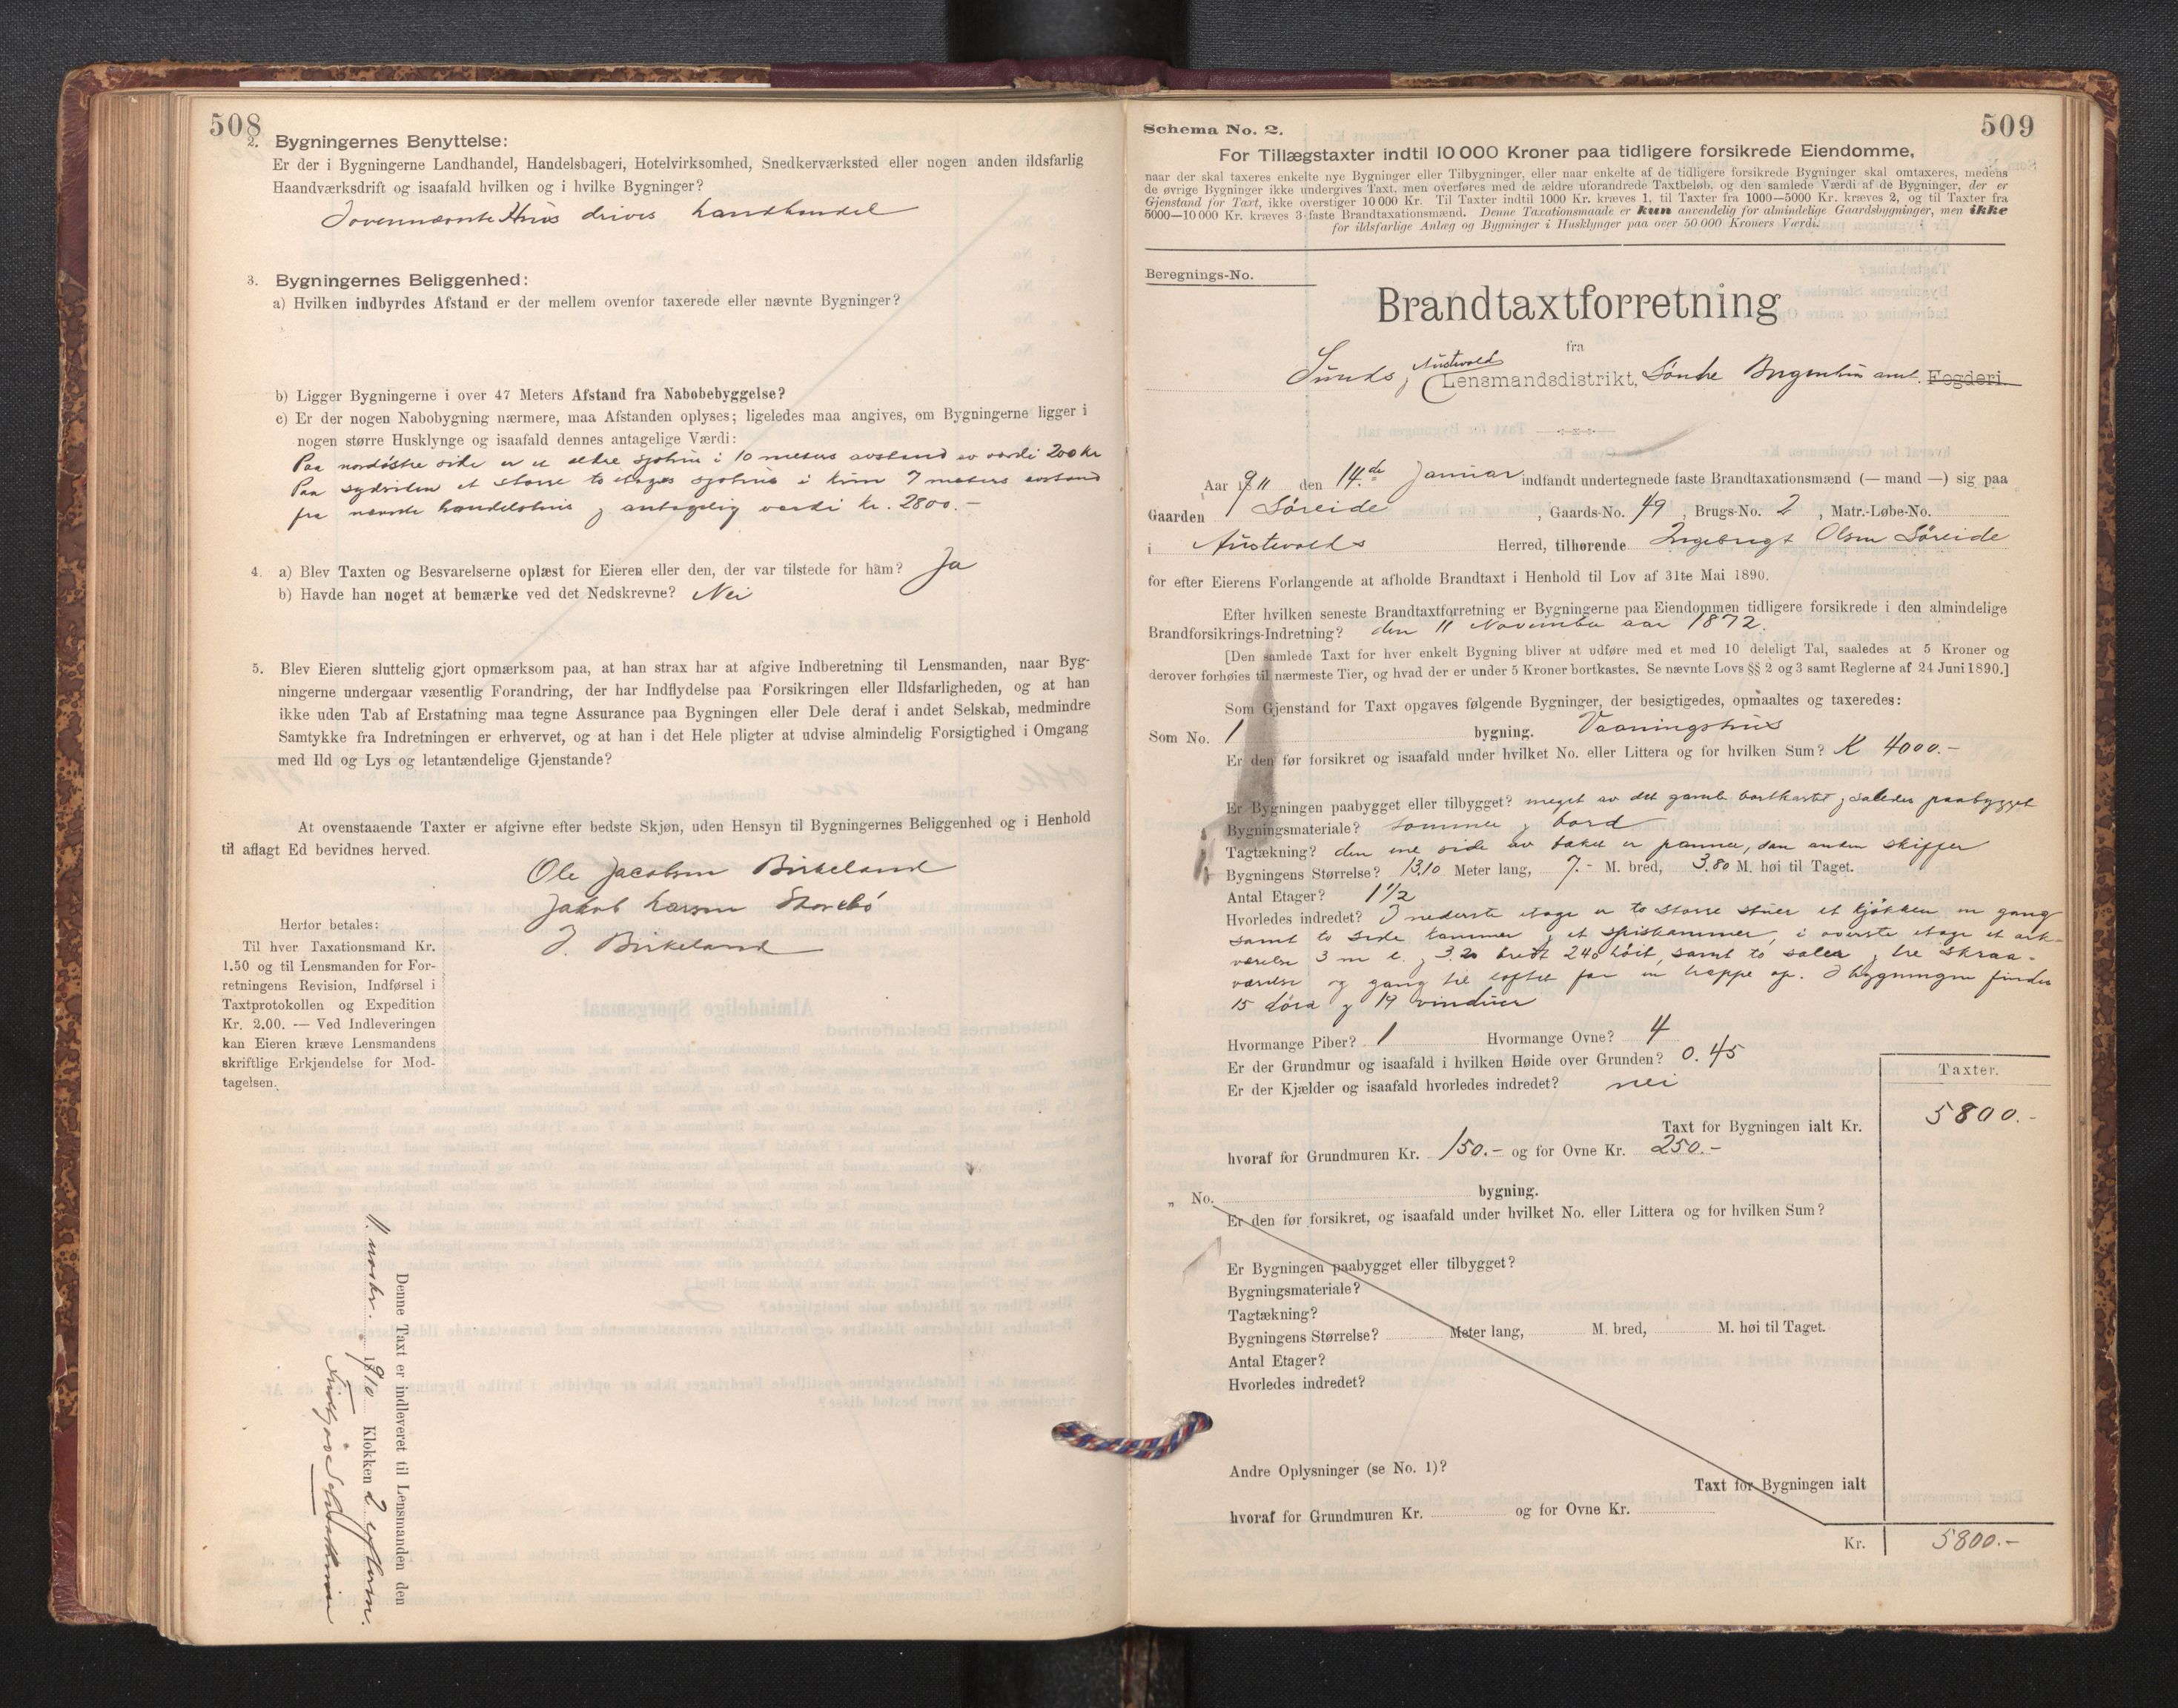 508
2. Bygningernes Benyttelse:
Er der i Bygningerne Landhandel, Handelsbageri, Hotelvirksomhed, Snedkerværksted eller nogen anden ildsfarlig
Haandværksdrift og isaafald hvilken og i hvilke Bygninger?
I ovennævnte Hus drives landhandel
3. Bygningernes Beliggenhed:
a) Hvilken indbyrdes Afstand er der mellem ovenfor taxerede eller nævnte Bygninger?
b) Ligger Bygningerne i over 47 Meters Afstand fra Nabobebyggelse?
c) Er der nogen Nabobygning nærmere, maa Afstanden oplyses; ligeledes maa angives, om Bygningerne ligger i
nogen større Husklynge og isaafald dennes antagelige Værdi:
Paa nordöstre side er et ældre sjøhus i 10 meters avstand av værdi 200 kr
Paa sydsiden et større to etages sjøhus i kun 7 meters avstand
fra nævnte handelshus og antagelig værdi kr. 2800.-
4. a) Blev Taxten og Besvarelserne oplæst for Eieren eller den, der var tilstede for ham? Ja
b) Havde han noget at bemærke ved det Nedskrevne? Nei
5. Blev Eieren sluttelig gjort opmærksom paa, at han strax har at afgive Indberetning til Lensmanden, naar Byg-
ningerne undergaar væsentlig Forandring, der har Indflydelse paa Forsikringen eller Ildsfarligheden, og at han
ikke uden Tab af Erstatning maa tegne Assurance paa Bygningen eller Dele deraf i andet Selskab, medmindre
Samtykke fra Indretningen er erhvervet, og at han i det Hele pligter at udvise almindelig Forsigtighed i Omgang
med Ild og Lys og letantændelige Gjenstande?
At ovenstaaende Taxter er afgivne efter bedste Skjøn, uden Hensyn til Bygningernes Beliggenhed og i Henhold
til aflagt Ed bevidnes herved.
Ole Jacobsen Birkeland
Jakob Larsen Storebö
J. Birkeland
Herfor betales:
Til hver Taxationsmand Kr.
1.50 og til Lensmanden for For-
retningens Revision, Indførsel i
Taxtprotokollen og Expedition
Kr. 2.00. — Ved Indleveringen
kan Eieren kræve Lensmandens
skriftlige Erkjendelse for Mod-
tagelsen.
Denne Taxt er indleveret til Lensmanden den
11 novbr. 1910 Klokken 2 efterm.
509
Schema No. 2.
For Tillægstaxter indtil 10 000 Kroner paa tidligere forsikrede Eiendomme,
naar der skal taxeres enkelte nye Bygninger eller Tilbygninger, eller naar enkelte af de tidligere forsikrede Bygninger skal omtaxeres, medens
de øvrige Bygninger ikke undergives Taxt, men overføres med de ældre uforandrede Taxtbeløb, og den samlede Værdi af de Bygninger, der er
Gjenstand for Taxt, ikke overstiger 10 000 Kr. Til Taxter indtil 1000 Kr. kræves 1, til Taxter fra 1000—5000 Kr. kræves 2, og til Taxter fra
5000—10 000 Kr. kræves 3 faste Brandtaxationsmænd. Denne Taxationsmaade er kun anvendelig for almindelige Gaardsbygninger, men ikke
for ildsfarlige Anlæg og Bygninger i Husklynger paa over 50 000 Kroners Værdi.
Beregnings-No.
Brandtaxtforretning
fra
Sunds og Austevolds Lensmandsdistrikt, Söndre Bergenhus amt. Fogderi.
Aar 1911 den 14de Januar indfandt undertegnede faste Brandtaxationsmænd (— mand —) sig paa
Gaarden Söreide, Gaards-No. 49, Brugs-No. 2, Matr.-Løbe-No.
i Austevolds Herred, tilhørende Ingebrigt Olsen Söreide
for efter Eierens Forlangende at afholde Brandtaxt i Henhold til Lov af 31te Mai 1890.
Efter hvilken seneste Brandtaxtforretning er Bygningerne paa Eiendommen tidligere forsikrede i den almindelige
Brandforsikrings-Indretning? den 11 November aar 1872.
[Den samlede Taxt for hver enkelt Bygning bliver at udføre med et med 10 deleligt Tal, saaledes at 5 Kroner og
derover forhøies til nærmeste Tier, og hvad der er under 5 Kroner bortkastes. Se nævnte Lovs §§ 2 og 3 samt Reglerne af 24 Juni 1890.]
Som Gjenstand for Taxt opgaves følgende Bygninger, der besigtigedes, opmaaltes og taxeredes:
Som No. 1 bygning. Vaaningshus
Er den før forsikret og isaafald under hvilket No. eller Littera og for hvilken Sum? K 4000.-
Er Bygningen paabygget eller tilbygget? meget av det gamle bortkastet og saaledes paabygget
Bygningsmateriale? tømmer og bord
Tagtækning? den ene side av taket er panner, den anden skiffer
Bygningens Størrelse? 13,10 Meter lang, 7.- M. bred, 3,80 M. høi til Taget.
Antal Etager? 1½
Hvorledes indredet? I nederste etage er to større stuer et kjökken en gang
samt to side kammer og et spiskammer, i øverste etage et ark-
værelse 3 m l. og 3.20 bredt 240 höit, samt to saler og tre skraa-
værelse og gang til loftet for en trappe op. I bygningen findes
15 döra og 19 vinduer
Hvormange Piber? 1 Hvormange Ovne? 4
Er der Grundmur og isaafald i hvilken Høide over Grunden? 0.45
Er der Kjælder og isaafald hvorledes indredet? nei
Taxter.
Taxt for Bygningen ialt Kr. 5800.-
hvoraf for Grundmuren Kr. 150.- og for Ovne Kr. 250.-
„ No. bygning.
Er den før forsikret, og isaafald under hvilket No. eller Littera og for hvilken Sum?
Er Bygningen paabygget eller tilbygget?
Bygningsmateriale?
Tagtækning?
Bygningens Størrelse? Meter lang, M. bred, M. høi til Taget.
Antal Etager?
Hvorledes indredet?
Andre Oplysninger (se No. 1)?
Taxt for Bygningen ialt
hvoraf for Grundmuren Kr. og for Ovne Kr.
Kr. 5800.-